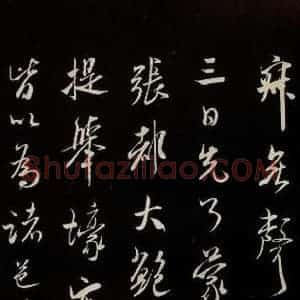 無聲
三日先了蒙
張都大鮑
提舉壕
皆以為諸邑
Shufaziliao.COM